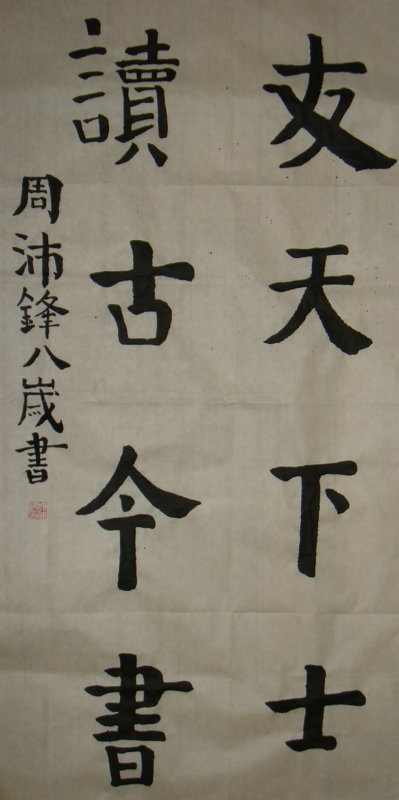 友天下士
讀古今書
周沛鋒八歲書